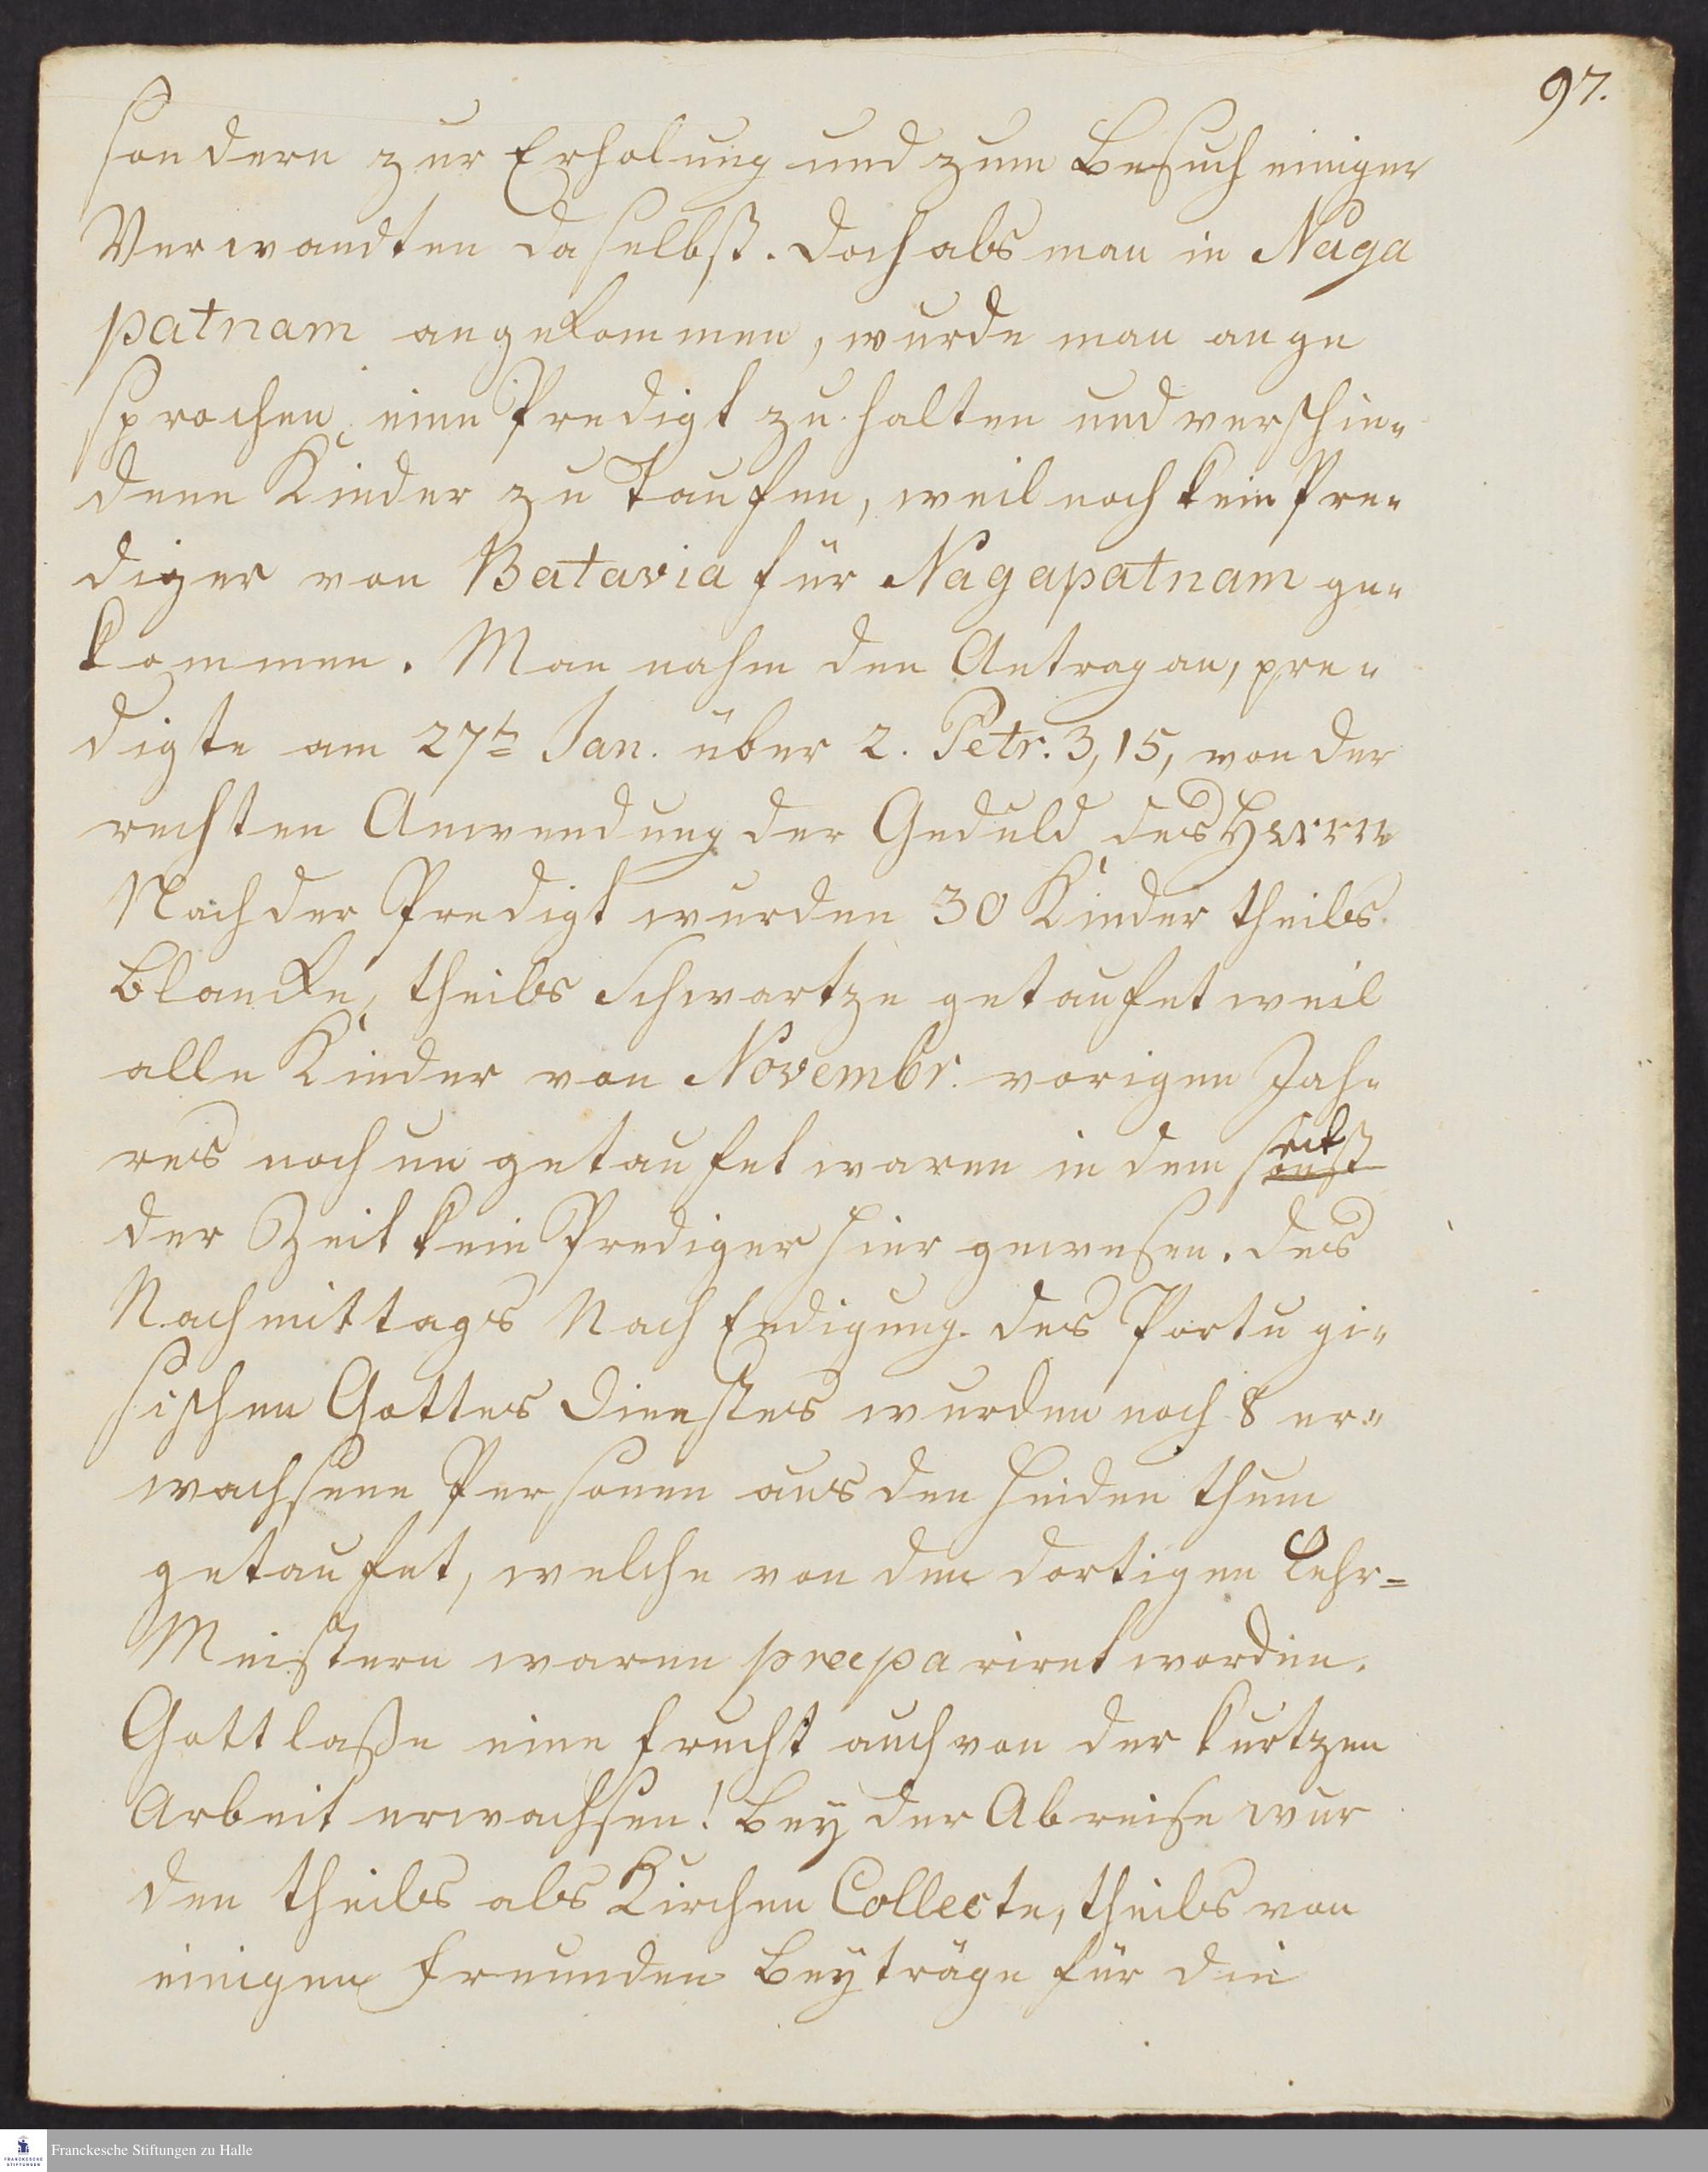 97.
sondern zur Erholung und zum Besuch einiger
Verwandten daselbst. doch als man in Naga
patnam angekommen, wurde man ange
sprochen, eine Predigt zu halten und verschie-
dene Kinder zu Taufen, weil noch kein Pre-
diger von Batavia für Nagapatnam ge-
kommen. Man nahm den Antrag an, pre-
digte am 27tn Jan. über 2. Petr. 3, 15, von der
rechten Anwendung der Geduld des Herrn
Nach der Predigt wurden 30 Kinder theils
Blancke, theils Schwartze getaufet weil
alle Kinder von Novembr. vorigen Jah-
res noch un getaufet waren in dem seit
der Zeit kein Prediger hier gewesen. des
Nachmittags Nach Endigung des Portu gi-
sischen Gottes Dienstes wurden noch 8 er-
wachsene Personen aus den Heiden thum
getaufet, welche von den dortigen Lehr=
Meistern waren præpa riret worden.
Gott laße eine Frucht auch von der kurtzen
Arbeit erwachsen! Bey der Abreise wur
den theils als Kirchen Collecte, theils von
einigen Freunden Beyträge für die
Franckesche Stiftungen zu Halle
FRANCKESCHE
STIFTUNGEN